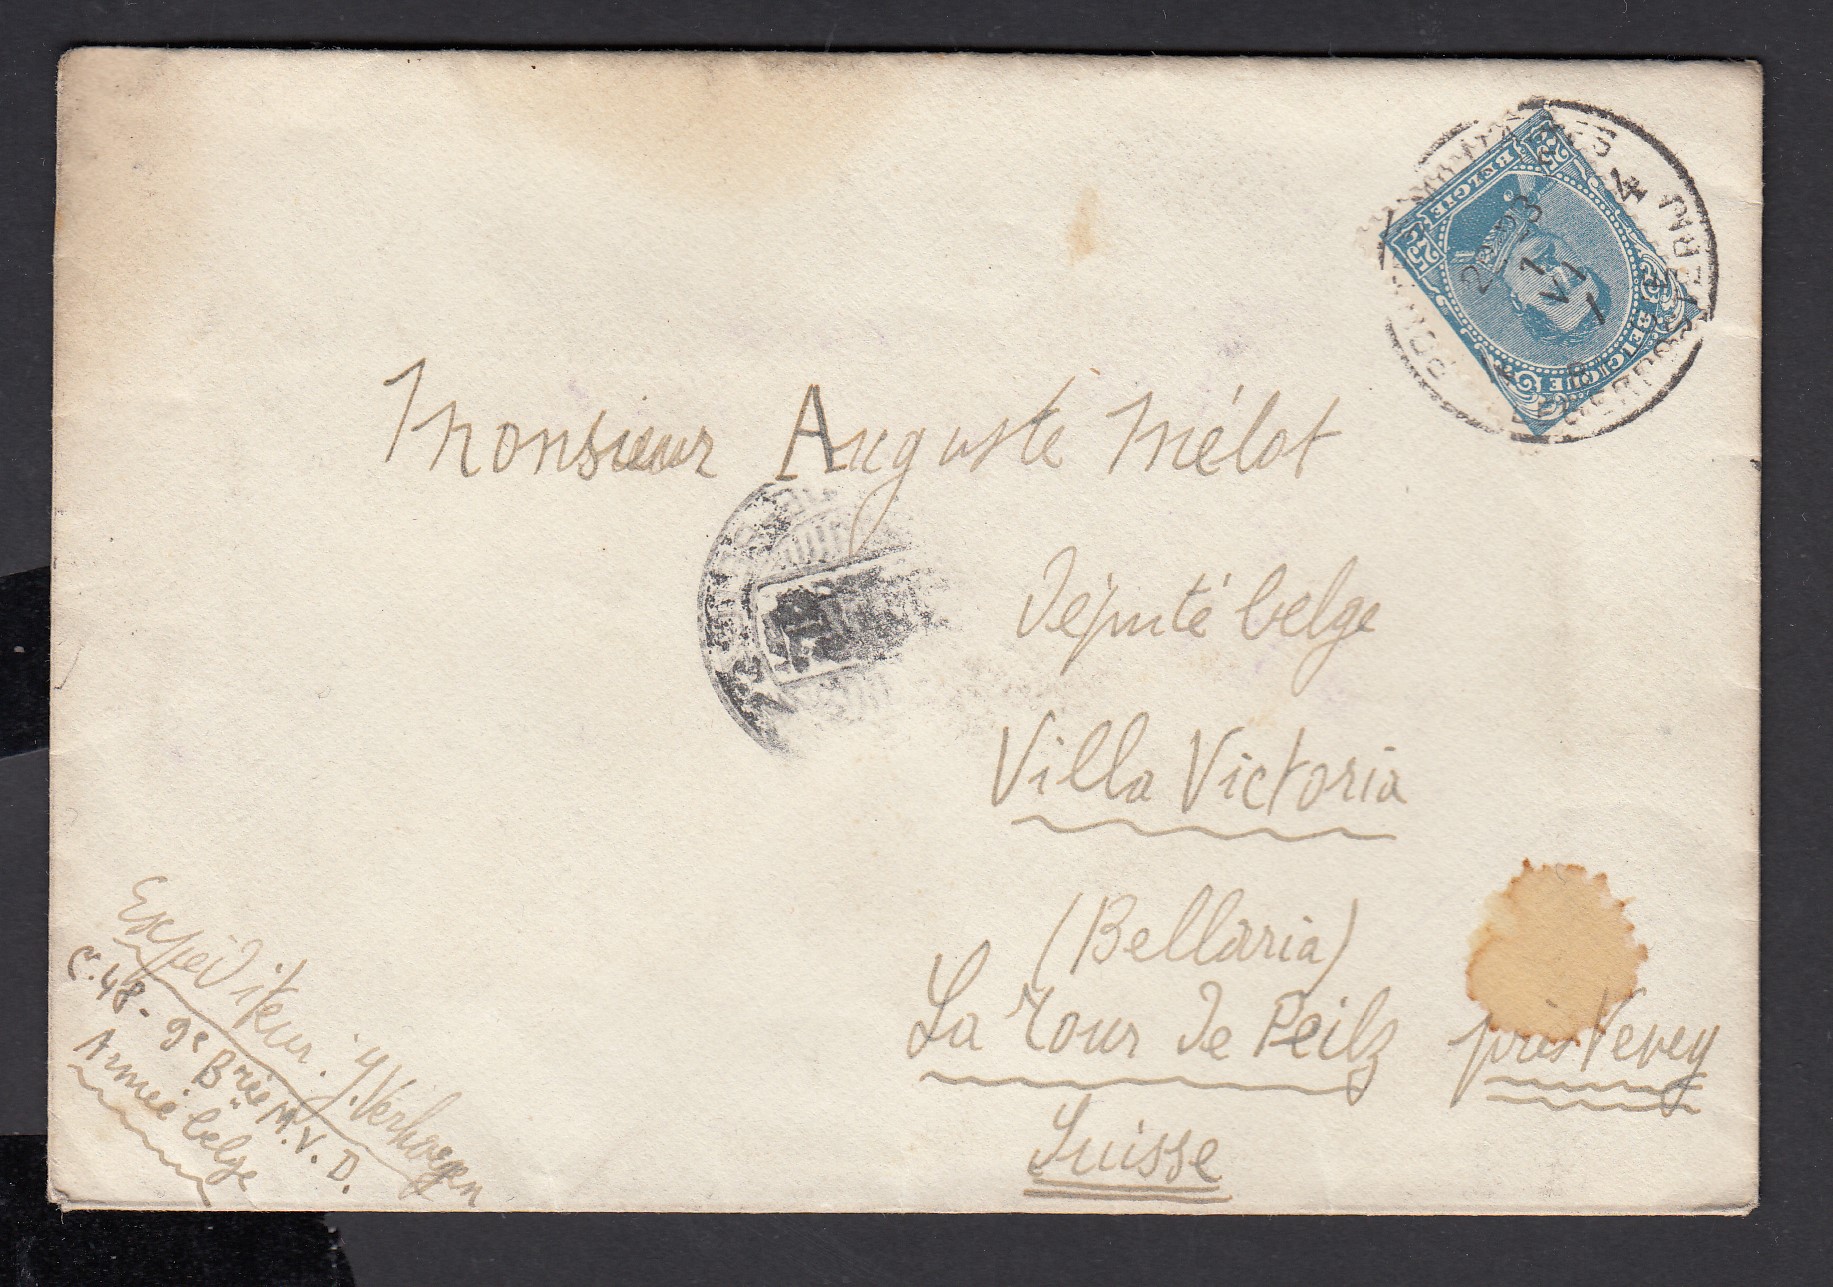 Monsieur Auguste Mélot
Député belge
Villa Victoria
(Bellaria)
La Tour de Peilz près Vevey
Suisse
Expéditeur. J. Verhaegen
C.48 - 9e Brie M.V.D.
Armée belge
25 BELGIE 25
BELGIQUE
4